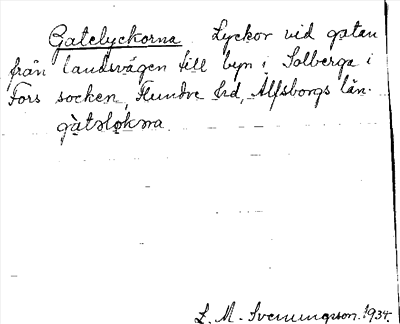 Gatelyckorna Lyckor vid gatan
från landsvägen till byn i Solberga i
Fors socken, Flundre hrd, Älfsborgs län.
gàtəlọkəna
L. M. Svenungsson. 1934.